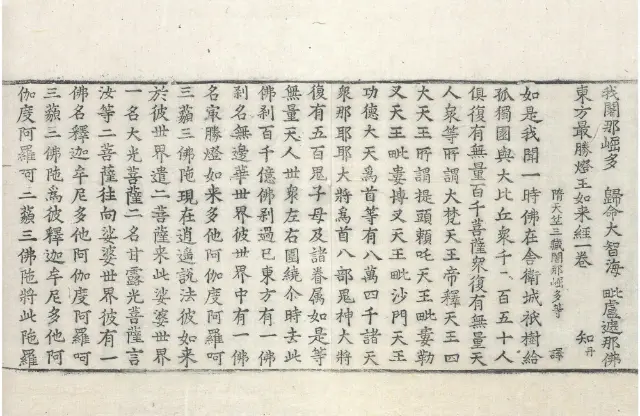 我闍那崛多 歸命大智海 毗盧遮那佛
東方最勝燈王如来經一卷 知 丹
隋天竺三藏闍那崛多等 譯
如是我聞一時佛在舍衛城祇樹給
孤獨園與大比丘衆千二百五十人
俱復有無量百千菩薩衆復有無量天
人衆等所謂大梵天王帝釋天王四
大天王所謂提頭賴吒天王毗婁勒
叉天王毗婁博叉天王毗沙門天王
功德大天爲首等有八萬四千諸天
衆那耶耶大將爲首八部鬼神大將
復有五百鬼子母及諸眷属如是等
無量天人世衆左右圍繞尒時去此
佛刹百千億佛刹過已東方有一佛
刹名無邊華世界彼世界中有一佛
名冣勝燈如来多他阿伽度阿羅呵
三藐三佛陁現在逍遥說法彼如来
於彼世界遣二菩薩来此娑婆世界
一名大光菩薩二名甘露光菩薩言
汝等二菩薩往向娑婆世界彼有一
佛名釋迦牟尼多他阿伽度阿羅呵
三藐三佛陁爲彼釋迦牟尼多他阿
伽度阿羅呵三藐三佛陁將此陁羅